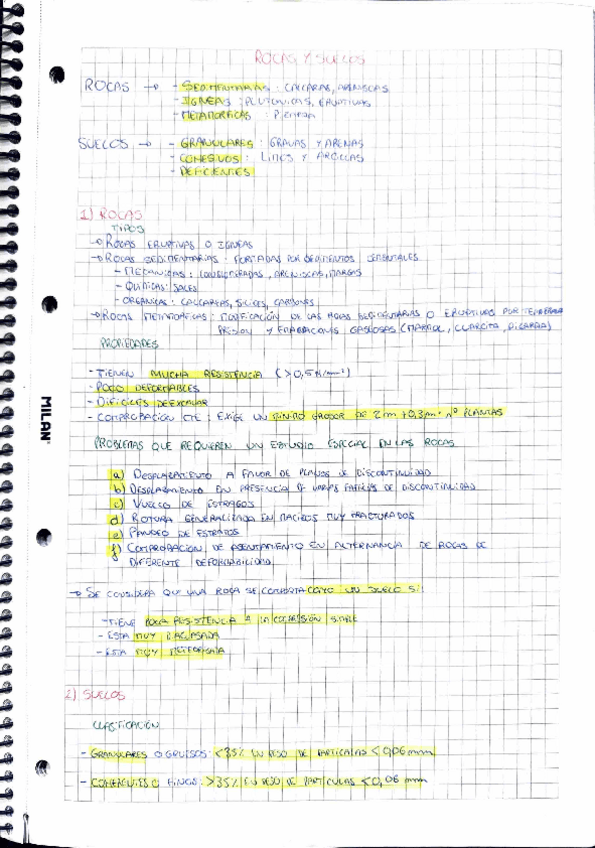 ROCAS Y SUELOS
ROCAS → - SEDIMENTARIAS : CALCÁREAS, ARENISCAS
- ÍGNEAS : PLUTÓNICAS, ERUPTIVAS
- METAMÓRFICAS : PIZARRA
SUELOS → - GRANULARES : GRAVAS Y ARENAS
- COHESIVOS : LIMOS Y ARCILLAS
- DEFICIENTES
1) ROCAS
TIPOS
→ ROCAS ERUPTIVAS O ÍGNEAS
→ ROCAS SEDIMENTARIAS : FORMADAS POR SEDIMENTOS
- MECÁNICAS : CONGLOMERADAS, ARENISCAS, MARGAS
- QUÍMICAS : SALES
- ORGÁNICAS : CALCÁREAS, SÍLICES, CARBONES
→ ROCAS METAMÓRFICAS : MODIFICACIÓN DE LAS ROCAS SEDIMENTARIAS O ERUPTIVAS POR
PRESIÓN Y EMANACIONES GASEOSAS (MÁRMOL, CUARCITA, PIZARRA)
PROPIEDADES
- TIENEN MUCHA RESISTENCIA
- POCO DEFORMABLES
- DIFÍCILES DE EXCAVAR
- COMPROBACIÓN CTE : EXIGE UN MÍNIMO GROSOR DE 2m + 0,3m · nº PLANTAS
PROBLEMAS QUE REQUIEREN UN ESTUDIO ESPECIAL EN LAS ROCAS
a) DESPLAZAMIENTO A FAVOR DE PLANOS DE DISCONTINUIDAD
b) DESPLAZAMIENTO EN PRESENCIA DE VARIAS FAMILIAS DE DISCONTINUIDAD
c) VUELCO DE ESTRATOS
d) ROTURA GENERALIZADA EN MACIZOS MUY FRACTURADOS
e) PANDEO DE ESTRATOS
f) COMPROBACIÓN DE ASENTAMIENTO EN ALTERNANCIA DE ROCAS DE
DIFERENTE DEFORMABILIDAD
→ SE CONSIDERA QUE UNA ROCA SE COMPORTA COMO UN SUELO SI:
- TIENE POCA RESISTENCIA A LA COMPRESIÓN SIMPLE
- ESTA MUY DIACLASADA
- ESTA MUY METEORIZADA
2) SUELOS
CLASIFICACIÓN
- GRANULARES O GRUESOS : <35% EN PESO DE PARTÍCULAS < 0,06 mm
- COHERENTES O FINOS : >35% EN PESO DE PARTÍCULAS < 0,06 mm
MILAN